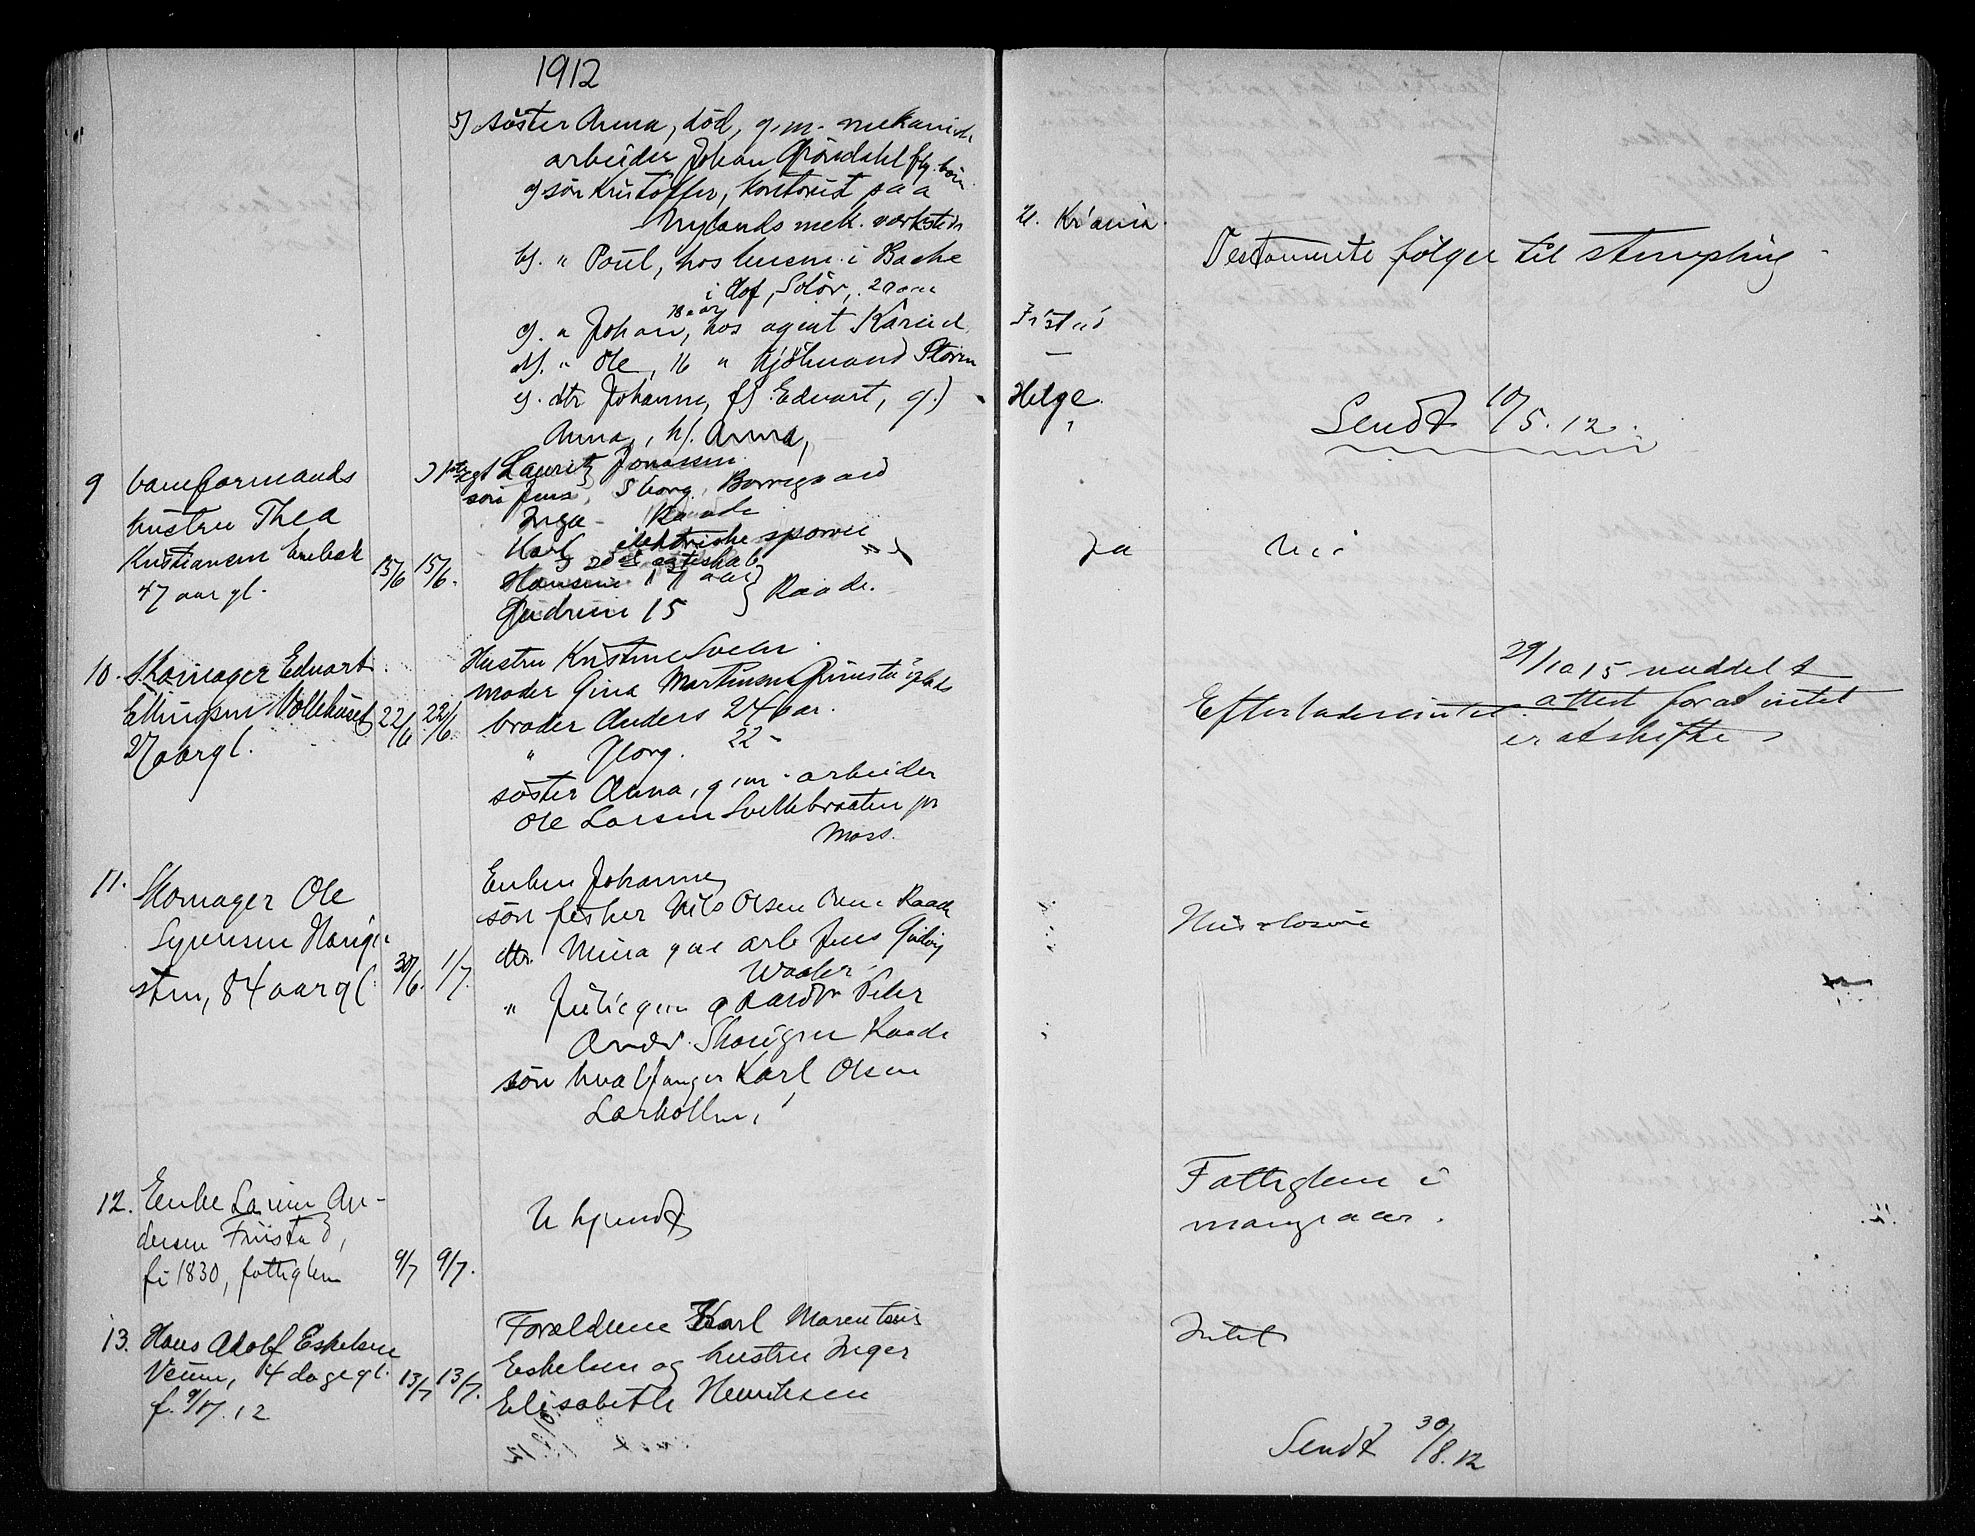 1912
5) söster Anna, död, g.m. mekanisk
arbeider Johan Gröndahl flg. börn
a) sön Kristoffer, kontorist paa
Nylands mek. verksted
U. Kr.ania.
Testamente følger til stempling
b). " Poul, hos husm. i Bache
i Hof, Solör, 20 aar
c). " Johan, 18 aar, hos agent
Fr.stad
d). " Ole, 16 "
—
e). dtr Johanne, f) Edvart, g.)
Helge.
Anna, h). Anna,
Sendt 10/5.12.
9 baneformands
hustru Thea
Kristiansen Enebak
47 aar gl.
15/6 15/6.
Lauritz Jonassen
sön Jens, Sborg, Borregaard
Inga - Raade
Karl elektriske sporvei
2det egteskab
Hansine 17 aar
Gudrun 15 } Raade.
ja
nei
10. Skomager Edvart
Ellingsen Vollehuset
27 aar gl.
22/6 22/6
Hustru Kristine
moder Gina Martinsen
broder Anders 24 aar.
" Georg. 22 -
söster Anna, g.m. arbeider
Ole Larsen Svellebraaten pr
Moss.
Efterlader intet.
29/10 15 meddelt
attest for at intet
er at skifte
11. Skomager Ole
Syversen
sten, 84 aar gl.
30/6. 1/7.
Enken Johanne
sön fisker Nils Olsen Raade
dtr. Mina g.m. arb Jens
Waaler.
" Julie g.m. gaardbr Peder
Andr. Raade
sön hvalfanger Karl Olsen
Larkollen,
12. Enke Larine An-
dersen Fristad,
f. i 1830, fattiglem
9/7 9/7.
Ukjendt
Fattiglem i
mange aar.
13. Hans Adolf Eskelsen
Veum, 4 dage gl.
f. 9/7.12
13/7 13/7.
Forældrene Karl Marentius
Eskelsen og hustru Inger
Elisabeth Henriksen
Intet
Sendt 30/8.12